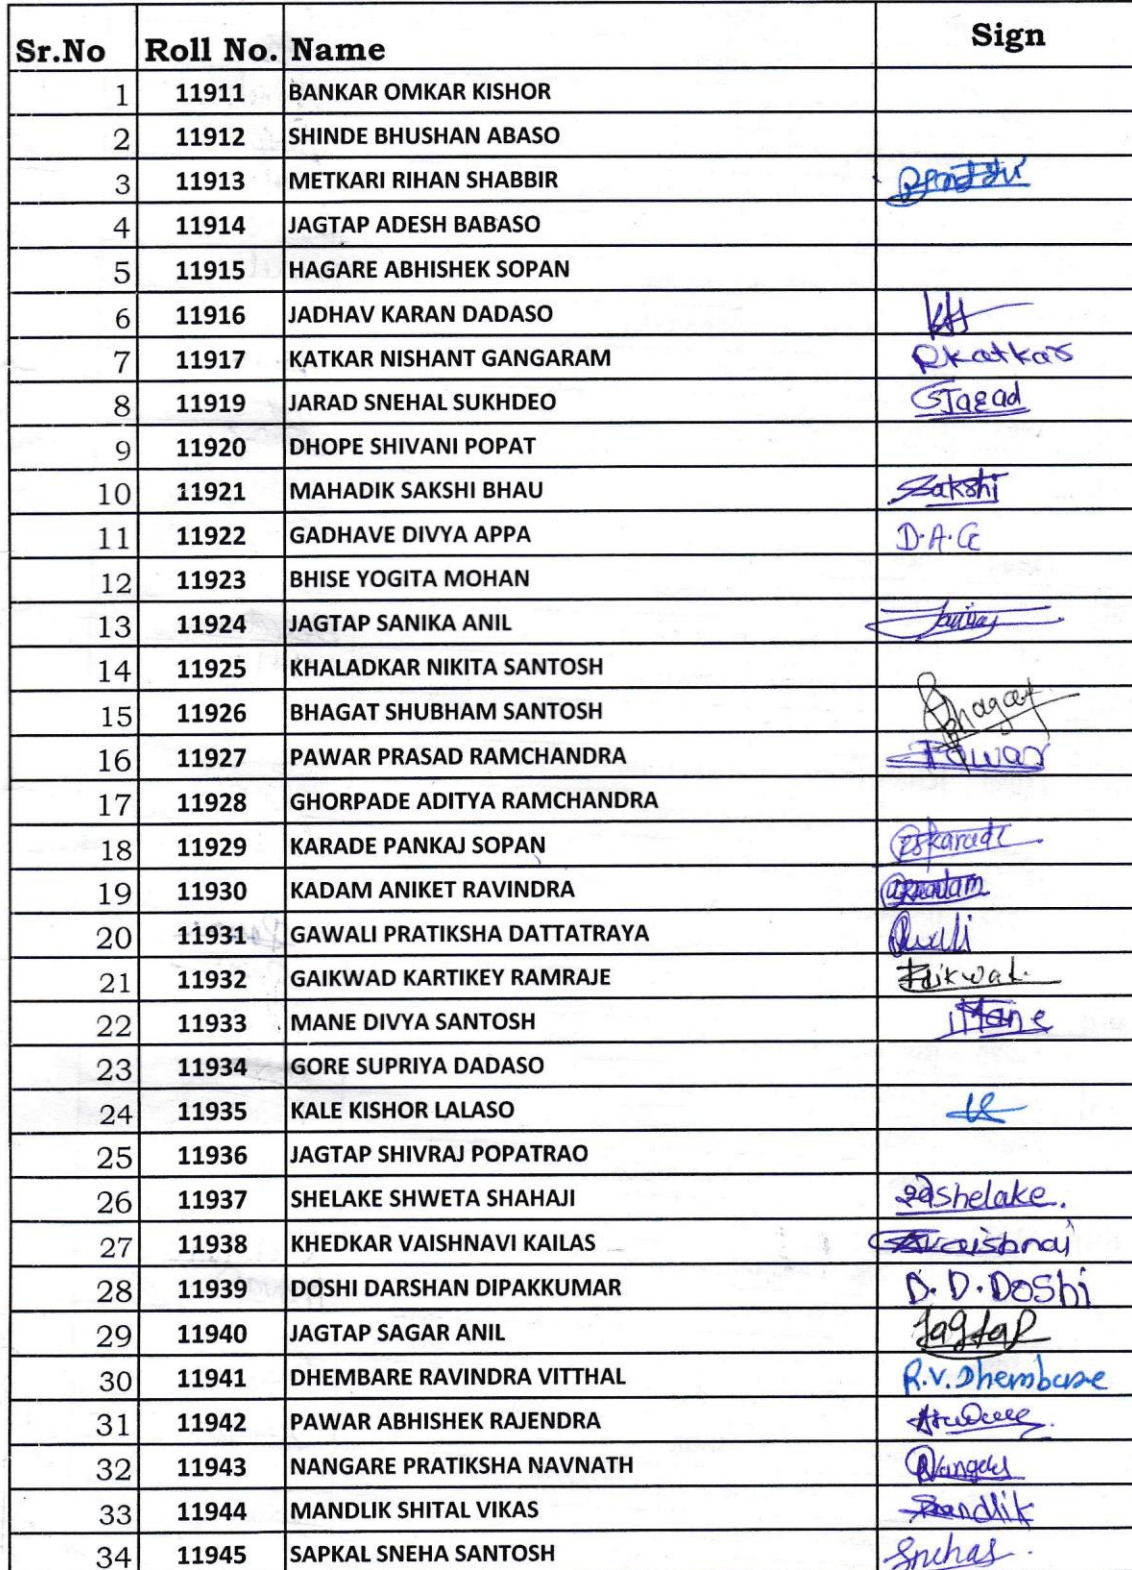 Sr.No Roll No. Name Sign
1 11911 BANKAR OMKAR KISHOR
2 11912 SHINDE BHUSHAN ABASO
3 11913 METKARI RIHAN SHABBIR
4 11914 JAGTAP ADESH BABASO
5 11915 HAGARE ABHISHEK SOPAN
6 11916 JADHAV KARAN DADASO
7 11917 KATKAR NISHANT GANGARAM Rkatkar
8 11919 JARAD SNEHAL SUKHDEO
9 11920 DHOPE SHIVANI POPAT
10 11921 MAHADIK SAKSHI BHAU Sakshi
11 11922 GADHAVE DIVYA APPA D.A.G
12 11923 BHISE YOGITA MOHAN
13 11924 JAGTAP SANIKA ANIL
14 11925 KHALADKAR NIKITA SANTOSH
15 11926 BHAGAT SHUBHAM SANTOSH Bhagat
16 11927 PAWAR PRASAD RAMCHANDRA Pawar
17 11928 GHORPADE ADITYA RAMCHANDRA
18 11929 KARADE PANKAJ SOPAN PSKarade
19 11930 KADAM ANIKET RAVINDRA
20 11931 GAWALI PRATIKSHA DATTATRAYA
21 11932 GAIKWAD KARTIKEY RAMRAJE
22 11933 MANE DIVYA SANTOSH Mane
23 11934 GORE SUPRIYA DADASO
24 11935 KALE KISHOR LALASO
25 11936 JAGTAP SHIVRAJ POPATRAO
26 11937 SHELAKE SHWETA SHAHAJI Shelake.
27 11938 KHEDKAR VAISHNAVI KAILAS
28 11939 DOSHI DARSHAN DIPAKKUMAR D.D.Doshi
29 11940 JAGTAP SAGAR ANIL Jagtap
30 11941 DHEMBARE RAVINDRA VITTHAL R.V.Dhembare
31 11942 PAWAR ABHISHEK RAJENDRA
32 11943 NANGARE PRATIKSHA NAVNATH
33 11944 MANDLIK SHITAL VIKAS
34 11945 SAPKAL SNEHA SANTOSH